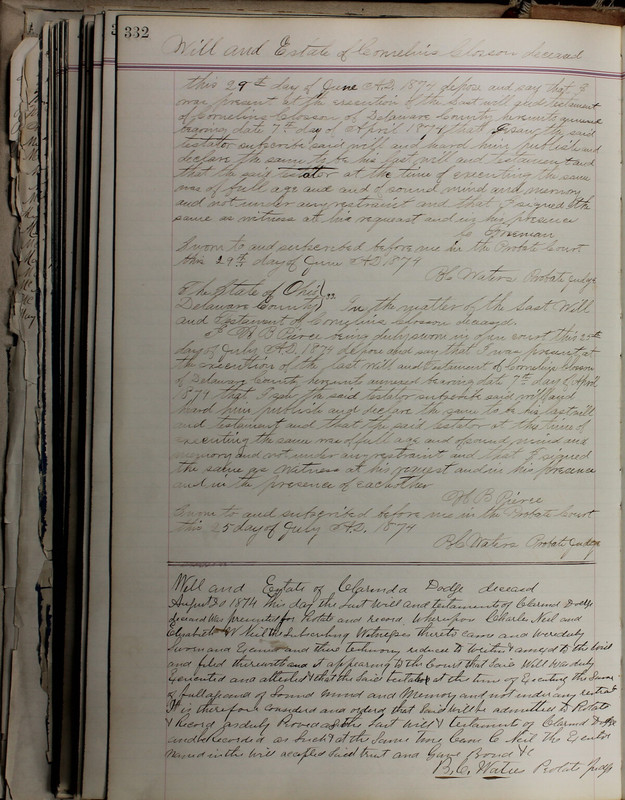 332
Will and Estate of Cornelius Closson deceased
this 29th day of June A.D. 1874 depose and say that I
was present at the execution of the last will and testament
of Cornelius Closson of Delaware County hereunto annexed
bearing date 7th day of April 1874 that I saw the said
testator subscribe said will and heard him publish and
declare the same to be his last will and testament and
that the said testator at the time of executing the same
was of full age and and of sound mind and memory
and not under any restraint and that I signed the
same as witness at his request and in his presence
C. Freeman
Sworn to and subscribed before me in the Probate Court
this 29th day of June A.D. 1874
B C Waters Probate Judge
The State of Ohio
Delaware County } ss In the matter of the Last Will
and Testament of Cornelius Closson deceased.
I B Pierce being duly sworn in open court this 25th
day of July A.D. 1874 depose and say that I was present at
the execution of the last will and testament of Cornelius Closson
of Delaware County hereunto annexed bearing date 7th day of April
1874 that I saw the said testator subscribe said will and
heard him publish and declare the same to be his last will
and testament and that the said testator at the time of
executing the same was of full age and of sound mind and
memory and not under any restraint and that I signed
the same as witness at his request and in his presence
and in the presence of each other
B Pierce
Sworn to and subscribed before me in the Probate Court
this 25 day of July A.D. 1874
B C Waters Probate Judge
Will and Estate of Clarinda Dodge deceased
August 30 1874 This day the Last Will and testament of Clarind Dodge
deceased was presented for Probate and record, Whereupon Charles Neil and
Elizabeth W Neil the Subscribing Witnesses thereto came and were duly
Sworn and Examd and their testimony reduced to Writing & annexed to the Will
and filed therewith and it appearing to the Court that Said Will was duly
Executed and attested & that the Said testator at the time of Executing the Same
of full age and of Sound Mind and Memory and not under any restraint
It is therefore considerd and orderd that Said Will be admitted to Probate
& Record as duly Proved as the Last Will & testament of Clarind Dodge
and be Recorded as Such & at the Same time Came C Neil the Executor
Named in the Will accepted Said trust and Gave Bond &c
B. C. Waters Probate Judge